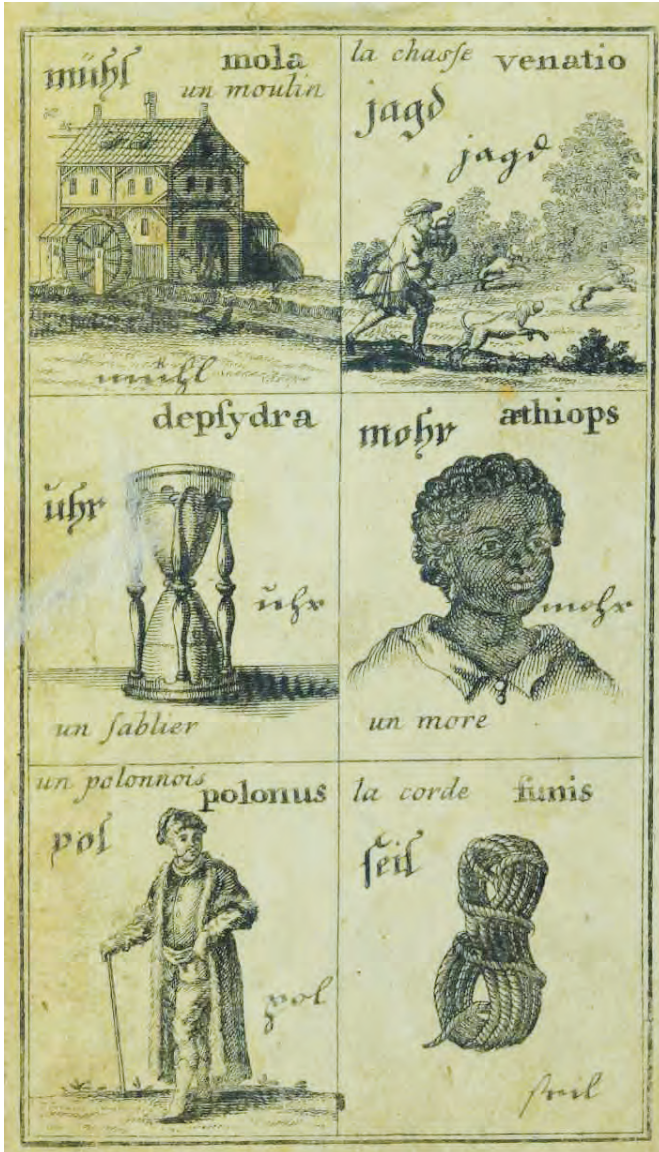 mühl
mola
un moulin
mühl
la chaſſe
venatio
jagd
jagd
depſydra
uhr
uhr
un ſablier
mohr
æthiops
mohr
un more
un polonnois
polonus
pol
pol
la corde
funis
ſeil
ſeil